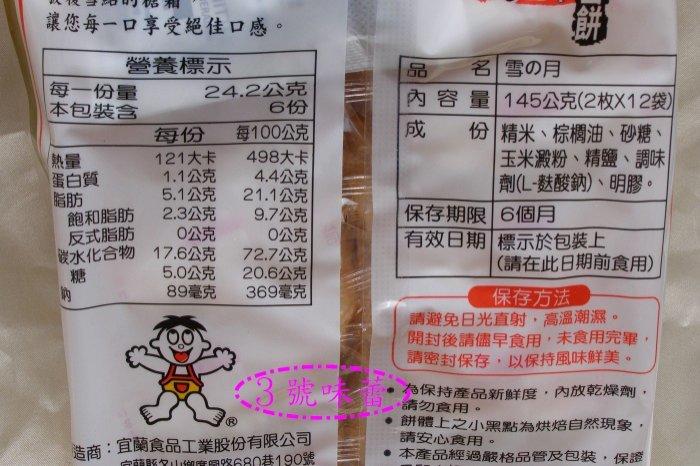 讓您每一口享受絕佳口感。
營養標示
每一份量 24.2公克
本包裝含 6份
每份 每100公克
熱量 121大卡 498大卡
蛋白質 1.1公克 4.4公克
脂肪 5.1公克 21.1公克
飽和脂肪 2.3公克 9.7公克
反式脂肪 0公克 0公克
碳水化合物 17.6公克 72.7公克
糖 5.0公克 20.6公克
鈉 89毫克 369毫克
®
製造商：宜蘭食品工業股份有限公司
3號味蕾
餅
品名 雪の月
內容量 145公克(2枚X12袋)
成份 精米、棕櫚油、砂糖、
玉米澱粉、精鹽、調味
劑(L-麩酸鈉)、明膠。
保存期限 6個月
有效日期 標示於包裝上
(請在此日期前食用)
保存方法
請避免日光直射，高溫潮濕。
開封後請儘早食用，未食用完畢，
請密封保存，以保持風味鮮美。
• 為保持產品新鮮度，內放乾燥劑，
請勿食用。
• 餅體上之小黑點為烘焙自然現象，
請安心食用。
• 本產品經過嚴格品管及包裝，保證